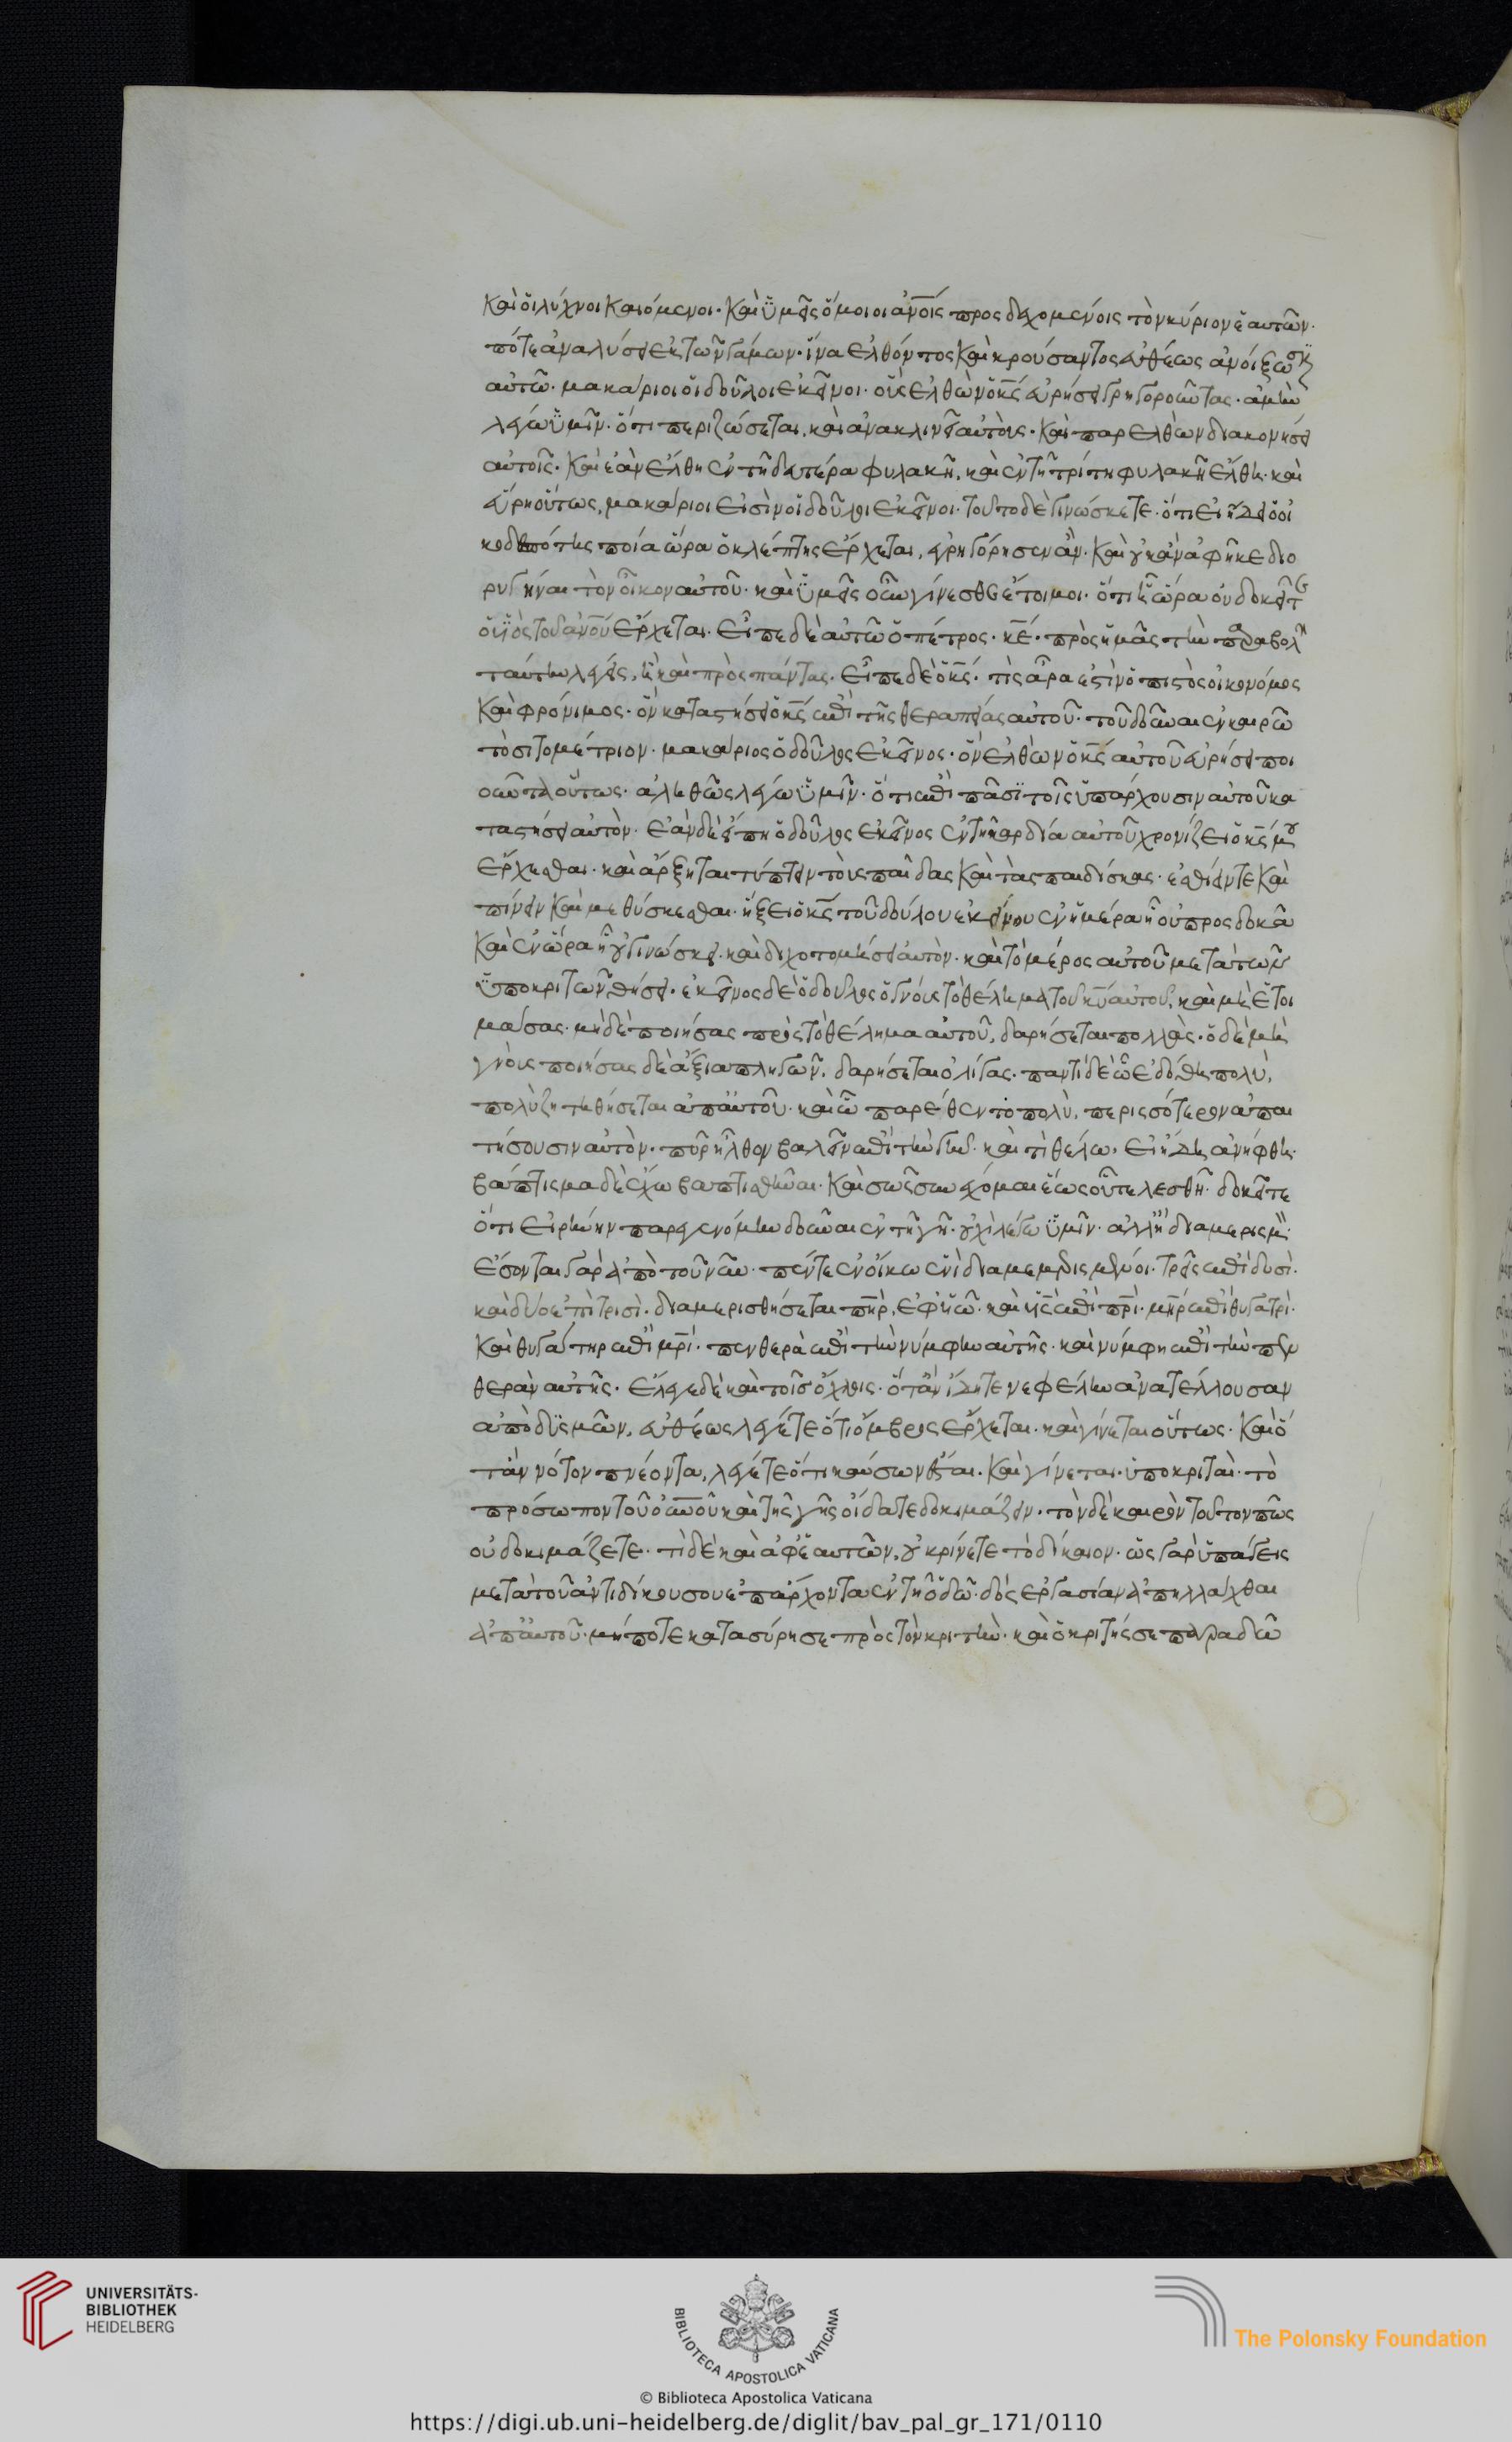 καὶ οἱ λύχνοι καιόμενοι· καὶ ὑμεῖς ὅμοιοι ἀνοῖς προσδεχομένοις τὸν κύριον ἑαυτῶν·
πότε ἀναλύσει ἐκ τῶν γάμων· ἵνα ἐλθόντος καὶ κρούσαντος εὐθέως ἀνοίξωσιν
αὐτῶ· μακάριοι οἱ δοῦλοι ἐκεῖνοι· οὓς ἐλθὼν ὁ κς εὑρήσει γρηγοροῦντας· ἀμὴν
λέγω ὑμῖν· ὅτι περιζώσεται, καὶ ἀνακλινεῖ αὐτοὺς· καὶ παρελθὼν διακονήσει
αὐτοῖς· καὶ ἐὰν ἔλθη ἐν τῆ δευτέρα φυλακῆ, καὶ ἐν τῆ τρίτη φυλακῆ ἔλθη· καὶ
εὕρη οὕτως, μακάριοι εἰσὶν οἱ δοῦλοι ἐκεῖνοι· τοῦτο δὲ γινώσκετε· ὅτι εἰ ἤδει ὁ οἰ
κοδεσπότης ποία ὥρα ὁ κλέπτης ἔρχεται, ἐγρηγόρησεν ἂν· καὶ οὐκ ἂν ἀφῆκε διο
ρυγῆναι τὸν οἶκον αὐτοῦ· καὶ ὑμεῖς οὖν γίνεσθε ἕτοιμοι· ὅτι ἧ ὥρα οὐ δοκεῖτε
ὁ υἱὸς τοῦ ἀνου ἔρχεται· εἶπε δὲ αὐτῶ ὁ πέτρος· κε· πρὸς ἡμᾶς τὴν παραβολὴν
ταύτην λέγεις, ἢ καὶ πρὸς πάντας· εἶπε δὲ ὁ κς· τίς ἄρα ἐστὶν ὁ πιστὸς οἰκονόμος
καὶ φρόνιμος· ὃν καταστήσει ὁ κς ἐπὶ τῆς θεραπείας αὐτοῦ· τοῦ δοῦναι ἐν καιρῶ
τὸ σιτομέτριον· μακάριος ὁ δοῦλος ἐκεῖνος· ὃν ἐλθὼν ὁ κς αὐτοῦ εὑρήσει ποι
οῦντα οὕτως· ἀληθῶς λέγω ὑμῖν· ὅτι ἐπὶ πᾶσι τοῖς ὑπάρχουσιν αὐτοῦ κα
ταστήσει αὐτὸν· ἐὰν δὲ εἴπη ὁ δοῦλος ἐκεῖνος ἐν τῆ καρδία αὐτοῦ χρονίζει ὁ κς μου
ἔρχεσθαι· καὶ ἄρξηται τύπτειν τοὺς παῖδας καὶ τὰς παιδίσκας· ἐσθίειν τε καὶ
πίνειν καὶ μεθύσκεσθαι· ἥξει ὁ κς τοῦ δούλου ἐκείνου ἐν ἡμέρα ἧ οὐ προσδοκᾶ
καὶ ἐν ὥρα ἧ οὐ γινώσκει· καὶ διχοτομήσει αὐτὸν· καὶ τὸ μέρος αὐτοῦ μετὰ τῶν
ὑποκριτῶν θήσει· ἐκεῖνος δὲ ὁ δοῦλος ὁ γνοὺς τὸ θέλημα τοῦ κυ αὐτοῦ, καὶ μὴ ἑτοι
μάσας· μὴ δὲ ποιήσας πρὸς τὸ θέλημα αὐτοῦ, δαρήσεται πολλὰς· ὁ δὲ μὴ
γνοὺς ποιήσας δὲ ἄξια πληγῶν, δαρήσεται ὀλίγας· παντὶ δὲ ὧ ἐδόθη πολὺ,
πολὺ ζητηθήσεται ἀπ αὐτοῦ· καὶ ὧ παρέθεντο πολὺ, περισσότερον ἀπαι
τήσουσιν αὐτὸν· πῦρ ἦλθον βαλεῖν ἐπὶ τὴν γῆν· καὶ τί θέλω, εἰ ἤδη ἀνήφθη·
βάπτισμα δὲ ἔχω βαπτισθῆναι· καὶ πῶς συνέχομαι ἕως οὗ τελεσθῆ· δοκεῖτε
ὅτι εἰρήνην παρεγενόμην δοῦναι ἐν τῆ γῆ· οὐχὶ λέγω ὑμῖν· ἀλλ ἢ διαμερισμὸν·
ἔσονται γὰρ ἀπὸ τοῦ νῦν· πέντε ἐν οἴκω ἑνὶ διαμεμερισμένοι· τρεῖς ἐπὶ δυσὶ·
καὶ δύο ἐπὶ τρισὶ· διαμερισθήσεται πηρ, ἐφ υἱῶ· καὶ υἱς ἐπὶ πρι· μηρ ἐπὶ θυγατρὶ·
καὶ θυγάτηρ ἐπὶ μρι· πενθερὰ ἐπὶ τὴν νύμφην αὐτῆς· καὶ νύμφη ἐπὶ τὴν πεν
θερὰν αὐτῆς· ἔλεγε δὲ καὶ τοῖς ὄχλοις· ὅταν ἴδητε νεφέλην ἀνατέλλουσαν
ἀπὸ δυσμῶν, εὐθέως λέγετε ὅτι ὄμβρος ἔρχεται· καὶ γίνεται οὕτως· καὶ ὅ
ταν νότον πνέοντα, λέγετε ὅτι καύσων ἔσται· καὶ γίνεται· ὑποκριταὶ· τὸ
πρόσωπον τοῦ οὐνου καὶ τῆς γῆς οἴδατε δοκιμάζειν· τὸν δὲ καιρὸν τοῦτον πῶς
οὐ δοκιμάζετε· τί δὲ καὶ ἀφ ἑαυτῶν, οὐ κρίνετε τὸ δίκαιον· ὡς γὰρ ὑπάγεις
μετὰ τοῦ ἀντιδίκου σου ἐπ ἄρχοντα ἐν τῆ ὁδῶ· δὸς ἐργασίαν ἀπηλλάχθαι
ἀπ αὐτοῦ· μήποτε κατασύρη σε πρὸς τὸν κριτὴν· καὶ ὁ κριτής σε παραδῶ
UNIVERSITÄTS-
BIBLIOTHEK
HEIDELBERG
BIBLIOTECA APOSTOLICA VATICANA
The Polonsky Foundation
© Biblioteca Apostolica Vaticana
https://digi.ub.uni-heidelberg.de/diglit/bav_pal_gr_171/0110